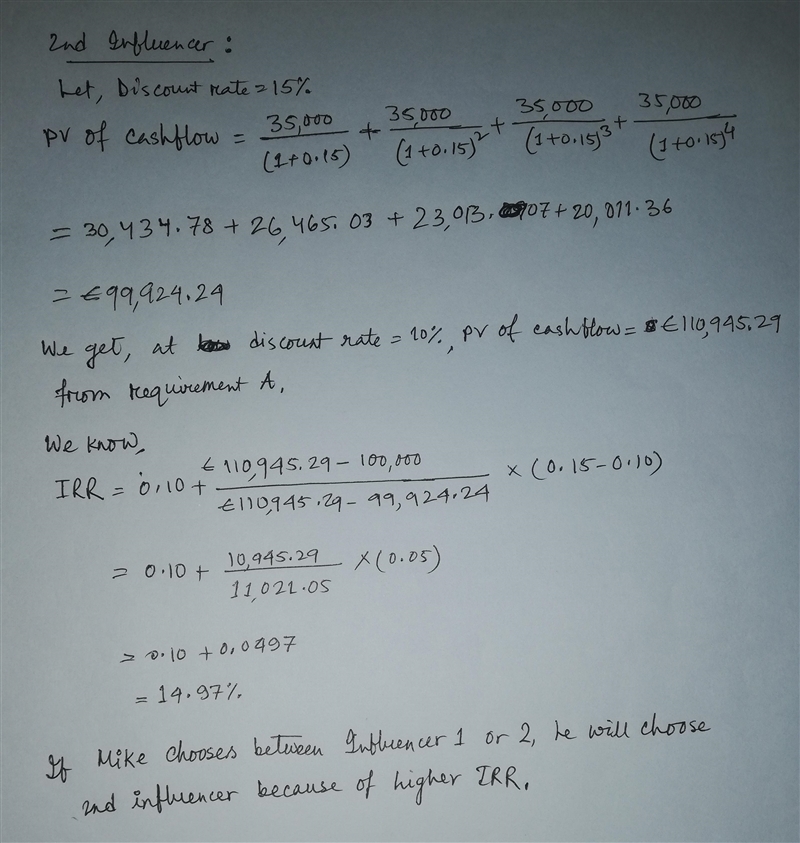 2nd Influencer:
Let, Discount rate = 15%
PV of cashflow = 35,000/(1+0.15) + 35,000/(1+0.15)^2 + 35,000/(1+0.15)^3 + 35,000/(1+0.15)^4
= 30,434.78 + 26,465.03 + 23,013.07 + 20,011.36
= €99,924.24
We get, at discount rate = 10%, PV of cashflow = €110,945.29
from requirement A,
We know,
IRR = 0.10 + (€110,945.29 - 100,000)/(€110,945.29 - 99,924.24) × (0.15-0.10)
= 0.10 + 10,945.29/11,021.05 × (0.05)
= 0.10 + 0.0497
= 14.97%
If Mike chooses between Influencer 1 or 2, he will choose
2nd influencer because of higher IRR.